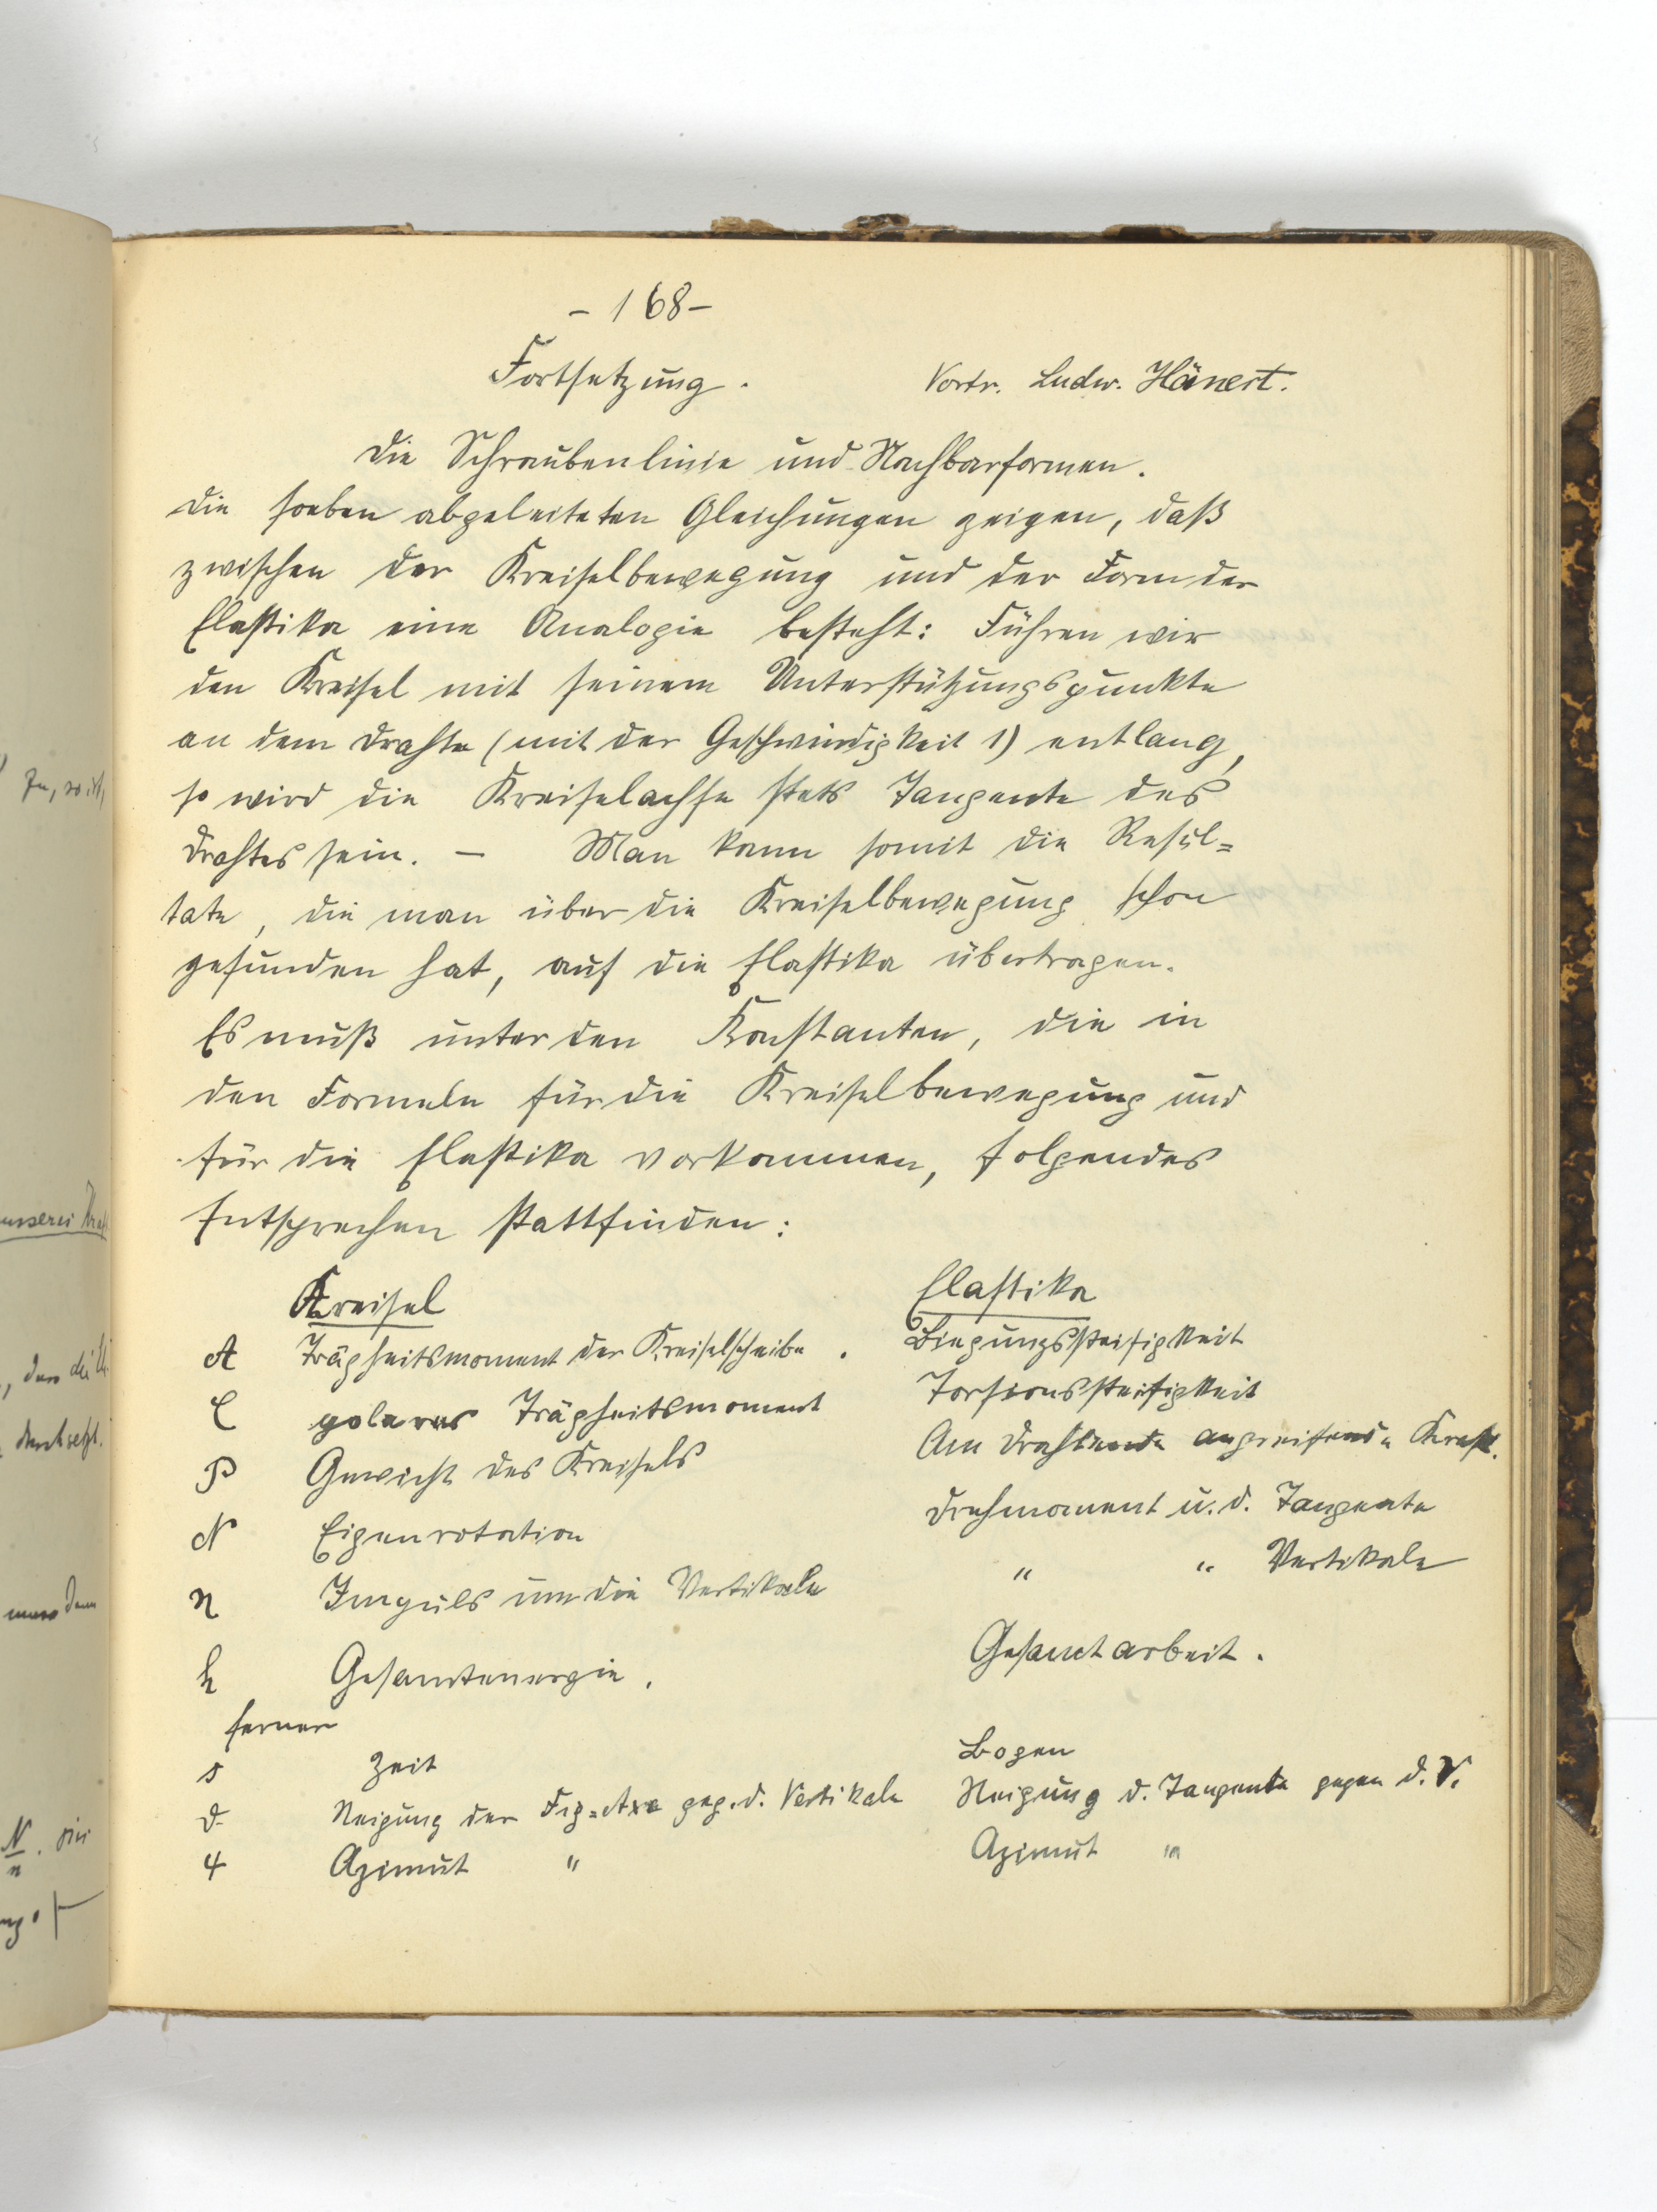 - 168 -
Fortsetzung. Vortr. Ludw. Hänert.
Die Schraubenlinie und Nachbarformen.
Die soeben abgeleiteten Gleichungen zeigen, daß
zwischen der Kreiselbewegung und der Form der
Elastika eine Analogie besteht: Führen wir
den Kreisel mit seinem Unterstützungspunkte
an dem Drahte (mit der Geschwindigkeit 1) entlang,
so wird die Kreiselachse stets Tangente des
Drahtes sein. — Man kann somit die Resul=
tate, die man über die Kreiselbewegung schon
gefunden hat, auf die Elastika übertragen.
Es muß unter den Konstanten, die in
den Formeln für die Kreiselbewegung und
für die Elastika vorkommen, folgendes
Entsprechen stattfinden:
Kreisel Elastika
A Trägheitsmoment der Kreiselscheibe. Biegungssteifigkeit
C polares Trägheitsmoment Torsionssteifigkeit
P Gewicht des Kreisels Am Drahtende angreifende Kraft.
N Eigenrotation Drehmoment u. d. Tangente
n Impuls um die Vertikale " " Vertikale
h Gesamtenergie. Gesamtarbeit.
ferner
s Zeit Bogen
ϑ Neigung der Fig=Axe geg. d. Vertikale Neigung d. Tangente gegen d. V.
ψ Azimut " Azimut "
zu, so ist,
äusserer
durchsetzt.
muss dann
N/n . sin